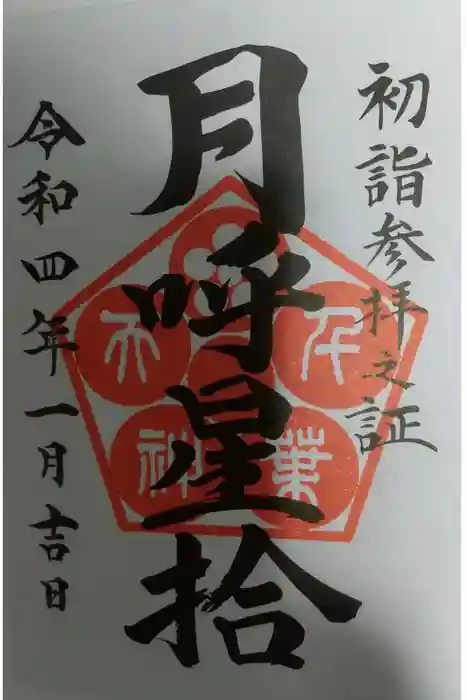 初詣参拝之証
月呼星拾
令和四年一月吉日
千葉天神